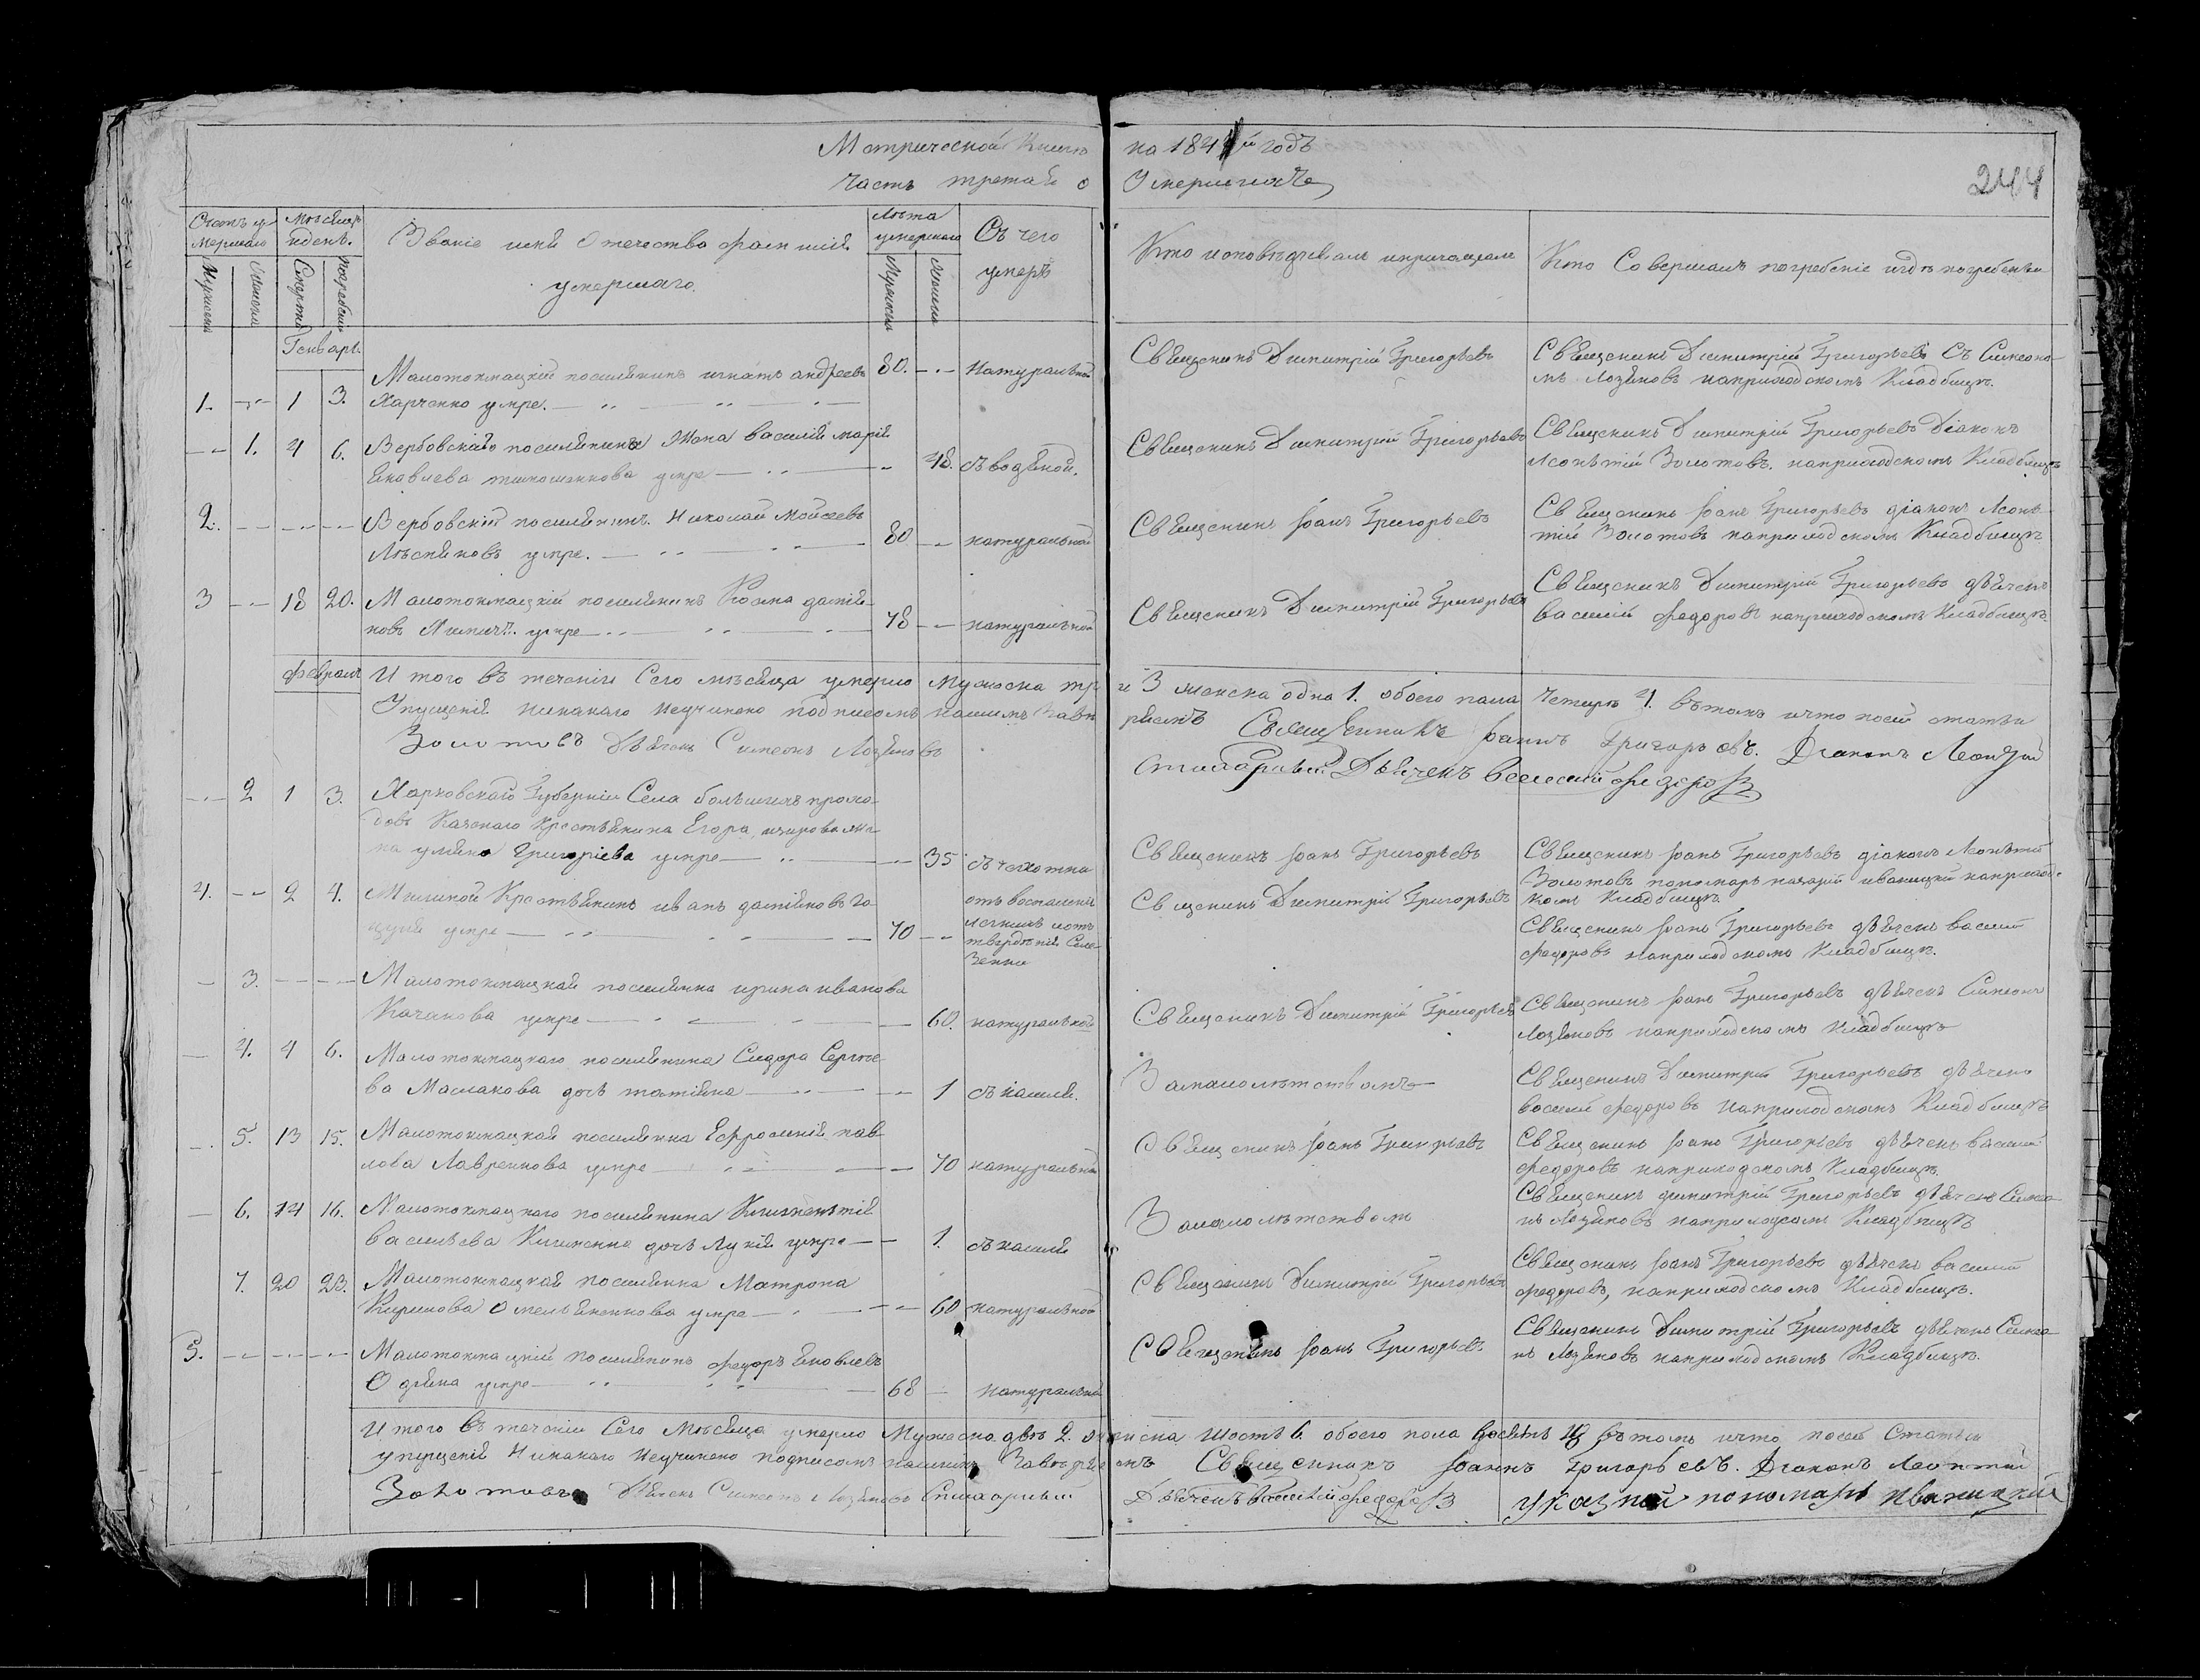 Метрической Книги на 184 й годъ
Часть третая о Умершихъ
244
Счетъ умершаго
Мѣсяцъ и день.
Званіе имя Отечество фамилія умершаго.
Лѣта умершаго
Съ чего умеръ
Кто исповѣдывалъ и прічащалъ
Кто Совершалъ погребеніе и гдѣ погребены
Мужеска
Женска
Смерти
Погребенія
Мужеска
Женска
Генварь
1. 1 3. Малотокмацкій поселянинъ игнатъ андреевъ 80. Натуральной
Харченко умре.
Священикъ Димитрій Григорьевъ
Священикъ Димитрій Григорьевъ Съ Симеономъ Лозяновъ наприходскомъ Кладбищѣ.
1. 4 6. Вербовскаго поселянина Жена василія марія
Яковлева умре 48. съ водяной.
Священикъ Димитрій Григорьевъ
Священикъ Димитрій Григорьевъ Діаконъ
Леонтій Золотовъ. наприходскомъ Кладбищѣ
2. Вербовскій поселянинъ. Николай Мойсеевъ
Лѣсняковъ умре. 80 натуральной
Священикъ Іоанъ Григорьевъ
Священикъ Іоанъ Григорьевъ діаконъ Леонтій Золотовъ наприходскомъ Кладбищѣ
3 18 20. Малотокмацкій поселянинъ Косма даміяновъ умре 78 натуральной
Священикъ Димитрій Григорьевъ
Священикъ Димитрій Григорьевъ дьячекъ
василій федоровъ наприходскомъ Кладбищѣ.
февраль
И того въ теченіи Сего мѣсяца умерло Мужеска три 3 женска одна 1. обоего пола Четыре 4. въ томъ и что посей статьи
Упущенія никакаго неучинено подписомъ нашимъ Завѣряемъ Священникъ Іоаннъ Григорьевъ. Діаконъ Леонтій
Золотовъ Дьячекъ Симеонъ Лозяновъ Дьячекъ Василий Федоровъ
2 1 3. Харковскаго Губерніи Села большихъ проходовъ Казенаго Крестьянина Егора жена уляна Григорієва умре 35 съ чахотки
Священикъ Іоанъ Григорьевъ
Священикъ Іоанъ Григорьевъ діаконъ Леонтій
Золотовъ пономарь назарій иваницкій наприходскомъ Кладбищѣ
4. 2 4. Крестьянинъ иванъ даміяновъ умре 70 отъ воспаленія
Священикъ Димитрій Григорьевъ
Священикъ Іоанъ Григорьевъ дьячекъ василій
федоровъ наприходскомъ Кладбищѣ.
3. Малотокмацкая поселянка ирина иванова
Качанова умре 60. натуральной
Священикъ Димитрій Григорьевъ
Священикъ Іоанъ Григорьевъ дьячекъ Симеонъ
Лозяновъ наприходскомъ Кладбищѣ
4. 4 6. Малотокмацкаго поселянина Сидора Сергѣева Маслакова дочь татіяна 1 съ кашля.
Замалолѣтствомъ
Священикъ Димитрій Григорьевъ дьячекъ
василій федоровъ наприходскомъ Кладбищѣ
5. 13 15. Малотокмацкая поселянка Ефросинія павлова Лавренкова умре 70 натуральной
Священикъ Іоанъ Григорьевъ
Священикъ Іоанъ Григорьевъ дьячекъ василій
федоровъ наприходскомъ Кладбищѣ.
6. 14 16. Малотокмацкаго поселянина
васильева дочь Лукія умре 1. съ кашля
Замалолѣтствомъ
Священикъ димитрій Григорьевъ дьячекъ Симеонъ Лозяновъ наприходскомъ Кладбищѣ
7. 20 23. Малотокмацкая поселянка Матрона
Кирилова Омельяненкова умре 60 натуральной
Священикъ Димитрій Григорьевъ
Священикъ Іоанъ Григорьевъ дьячекъ василій
федоровъ, наприходскомъ Кладбищѣ.
5. Малотокмацкій поселянинъ федоръ Яковлевъ
умре 68 натуральной
Священикъ Іоанъ Григорьевъ
Священикъ Димитрій Григорьевъ дьячекъ Симеонъ Лозяновъ наприходскомъ Кладбищѣ.
И того въ теченіи Сего Мѣсяца умерло Мужеска двѣ 2. женска Шость 6. обоего пола въ томъ и что посей Статьи
упущенія Никакаго Неучинено подписомъ нашимъ Завѣряемъ Священикъ Іоаннъ Григорьевъ. Діаконъ Леонтій
Золотовъ Дьячекъ Симеонъ Лозяновъ Дьячекъ Василій Федоровъ указной пономарь Иваницкій